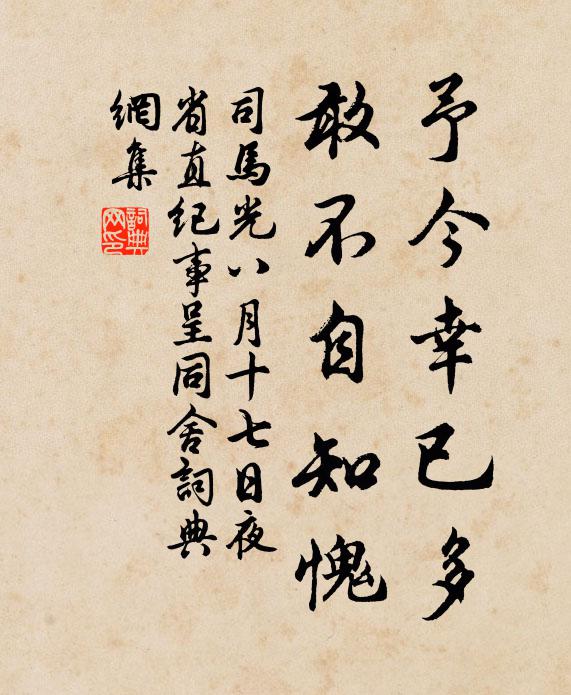 予今幸已多
敢不自知愧
司馬光八月十七日夜
省直纪事呈同舍詞典
網集
詞典
网印